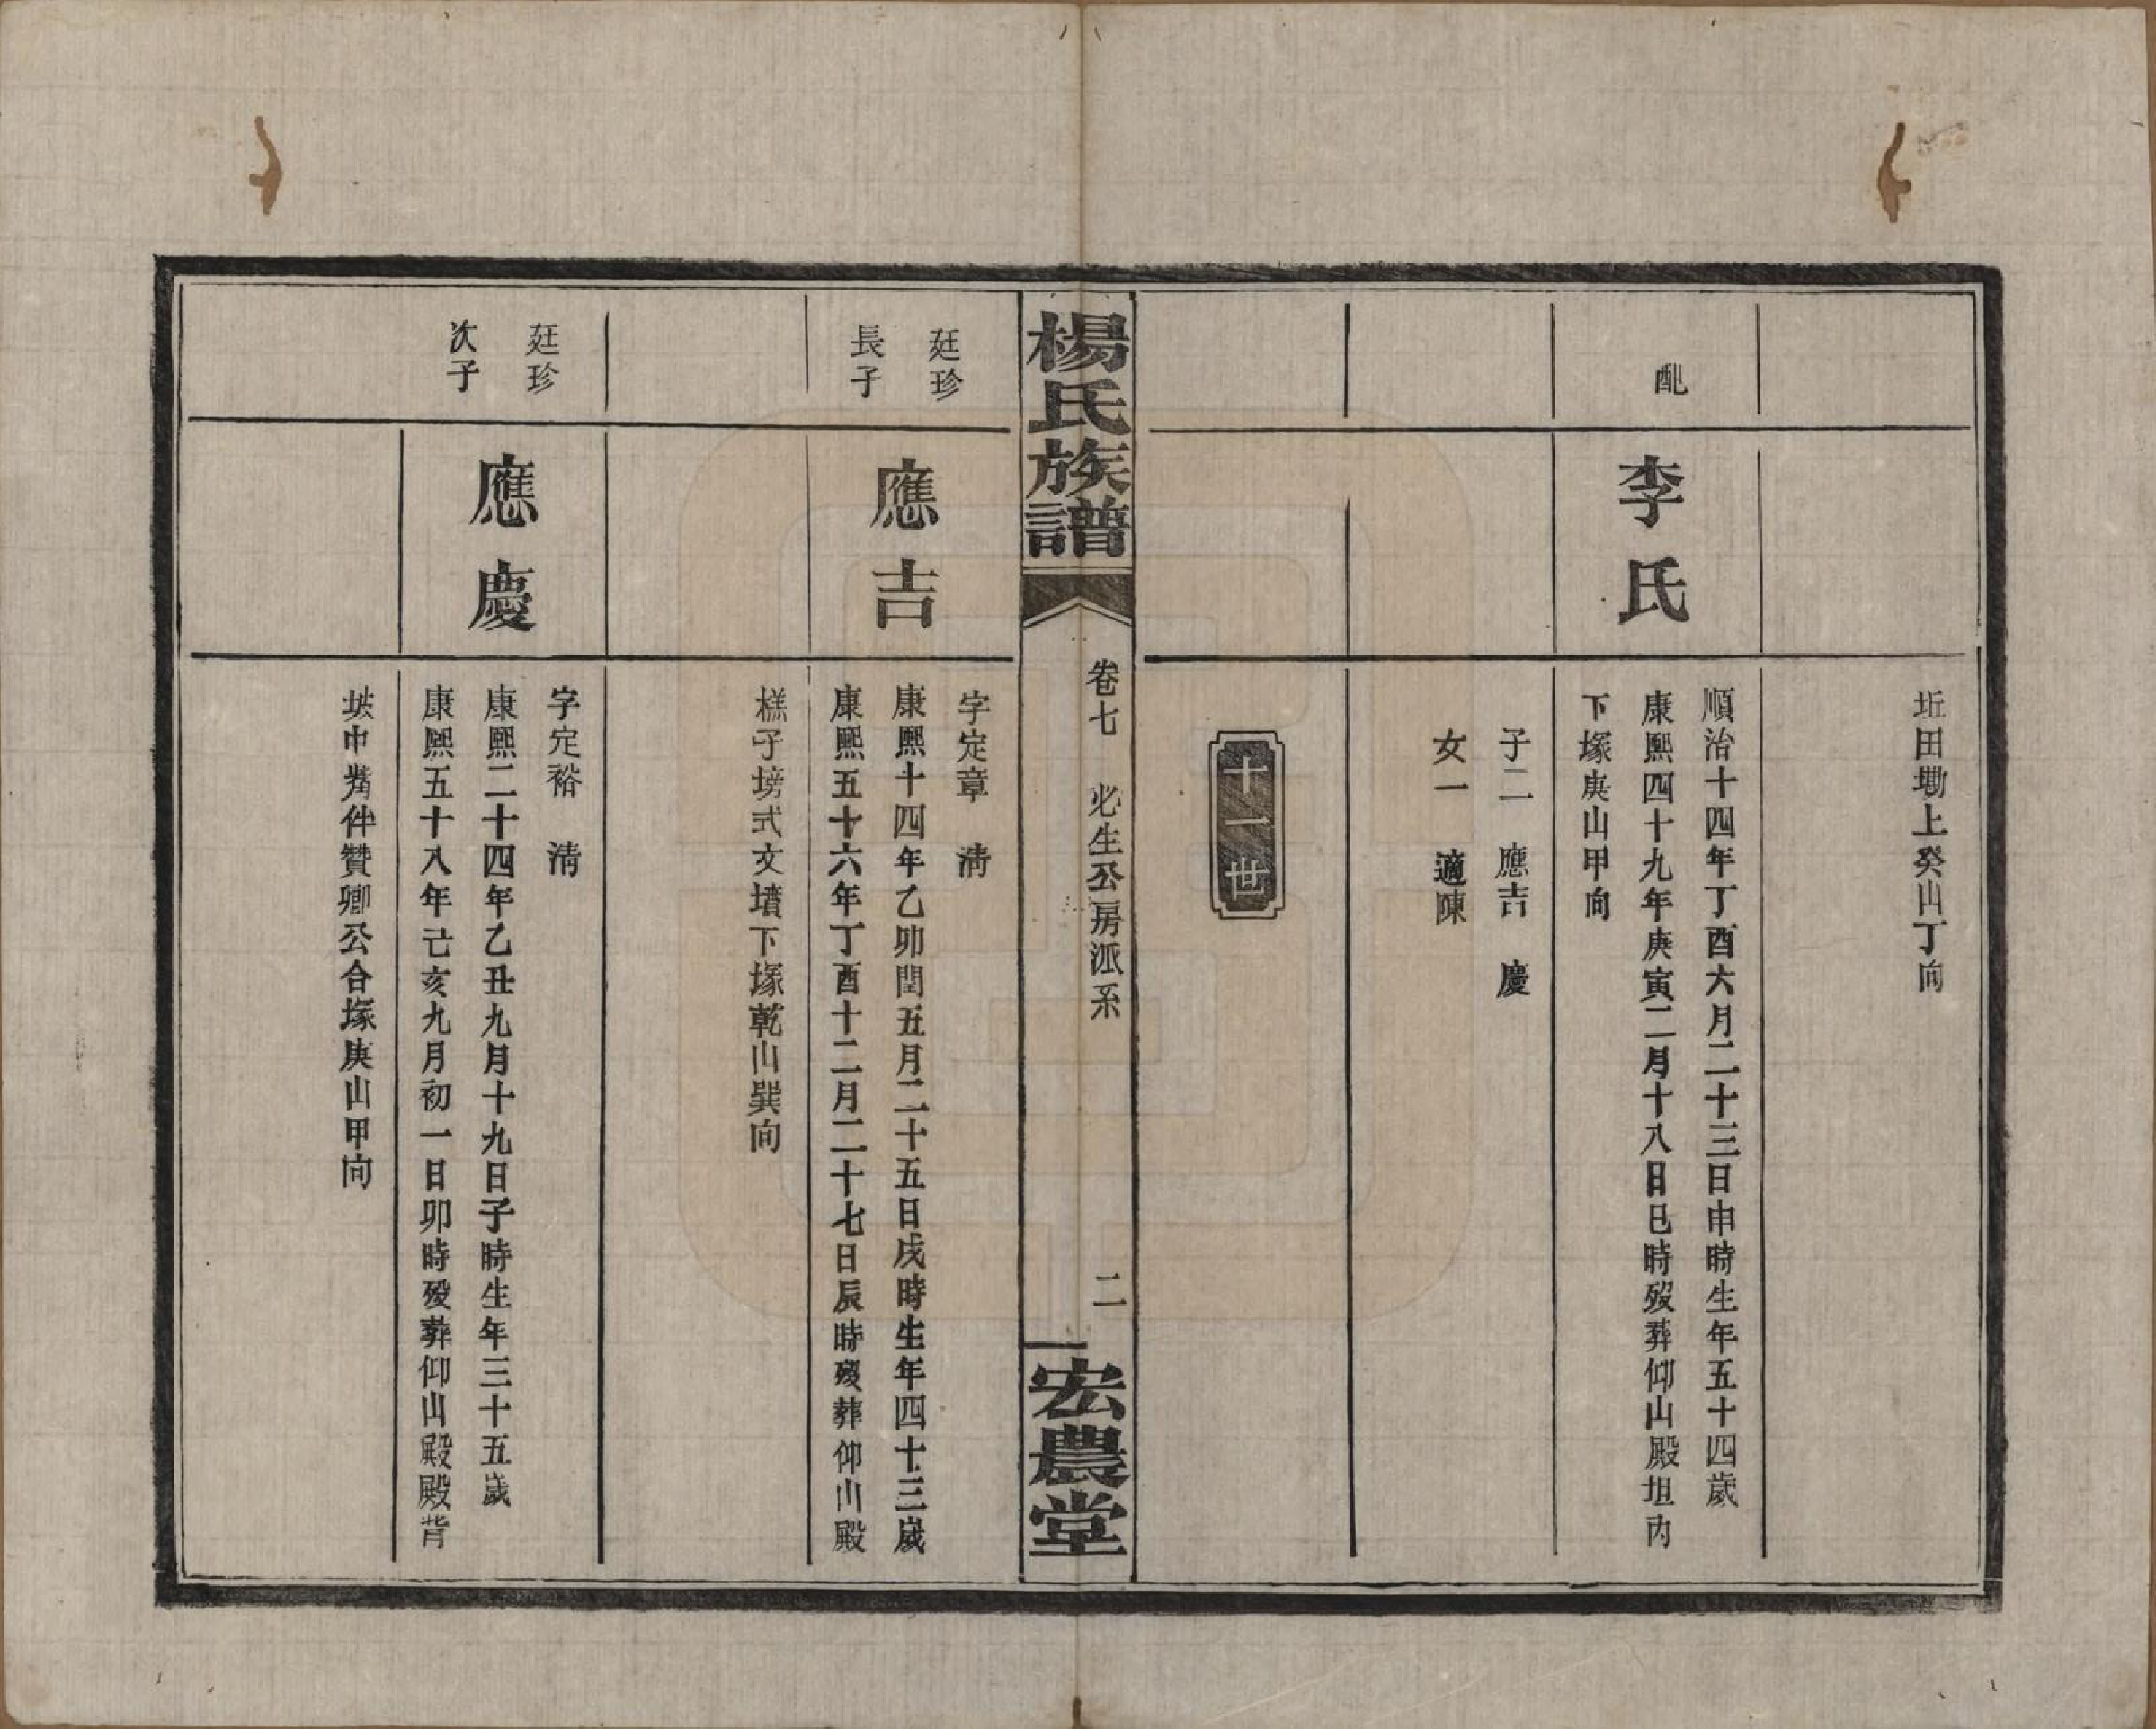 坵田墈上癸山丁向
配
李氏
順治十四年丁酉六月二十三日申時生年五十四歲
康熙四十九年庚寅二月十八日巳時歿葬仰山殿坦內
下塚庚山甲向
子二 應吉 慶
女一 適陳
十一世
楊氏族譜
卷七 必生公房派系
二
宏農堂
廷珍
長子
應吉
字定章 清
康熙十四年乙卯閏五月二十五日戌時生年四十三歲
康熙五十六年丁酉十二月二十七日辰時歿葬仰山殿
榚子塝式文墳下塚乾山巽向
廷珍
次子
應慶
字定裕 清
康熙二十四年乙丑九月十九日子時生年三十五歲
康熙五十八年己亥九月初一日卯時歿葬仰山殿殿背
中嘴伴贊卿公合塚庚山甲向